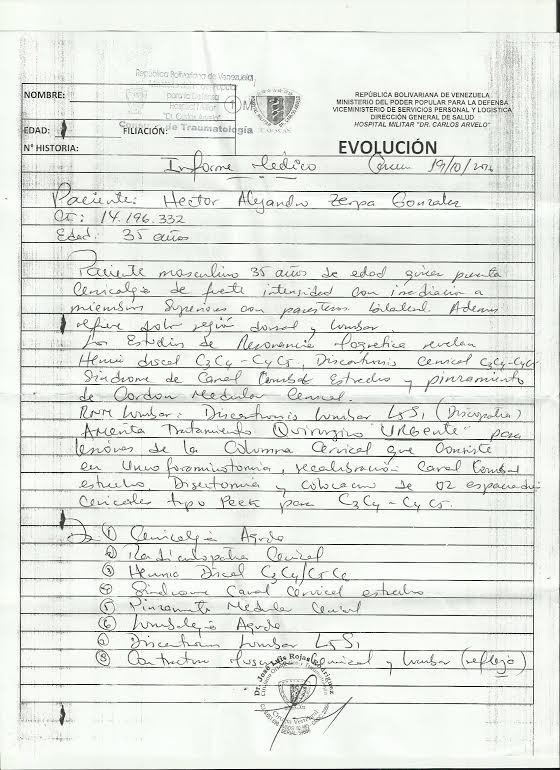 República Bolivariana de Venezuela
para la Defensa
Hospital Militar
"Dr. Carlos Arvelo"
Consulta de Traumatología
CARACAS
REPÚBLICA BOLIVARIANA DE VENEZUELA
MINISTERIO DEL PODER POPULAR PARA LA DEFENSA
VICEMINISTERIO DE SERVICIOS PERSONAL Y LOGISTICA
DIRECCIÓN GENERAL DE SALUD
HOSPITAL MILITAR "DR. CARLOS ARVELO"
NOMBRE:
EDAD:
FILIACIÓN:
N° HISTORIA:
EVOLUCIÓN
Informe Médico
19/10/
Paciente: Hector Alejandro Zerpa Gonzalez
CI: 14.196.332
Edad: 35 años
Paciente masculino 35 años de edad quien presenta
Cervicalgia de fuerte intensidad con irradiacion a
miembros Superiores con parestesia bilateral. Ademas
refiere dolor región dorsal y lumbar.
Los Estudios de Resonancia Magnetica revelan
Hernia discal C3C4-C4C5, Discartrosis Cervical C3C4-C4C5
Sindrome de Canal Estrecho y pinzamiento
de Cordon Medular Cervical.
RNM Lumbar: Discartrosis Lumbar L5S1 (Discopatia)
Amerita Tratamiento Quirurgico "URGENTE" para
lesiones de la Columna Cervical que Consiste
en Uncoforaminotomia, recalibración Canal
estrecho, Disectomia y colocacion de 02 espaciadores
Cervicales tipo Peek para C3C4-C4C5.
① Cervicalgia Aguda
② Radiculopatia Cervical
③ Hernia Discal C3C4/C5C6
④ Sindrome Canal Cervical estrecho
⑤ Pinzamiento Medular Cervical
⑥ Lumbalgia Aguda
Discartrosis Lumbar L5S1
⑧ Contractura Muscular Cervical y Lumbar (refleja)
Dr. José Luis Rojas Rodríguez